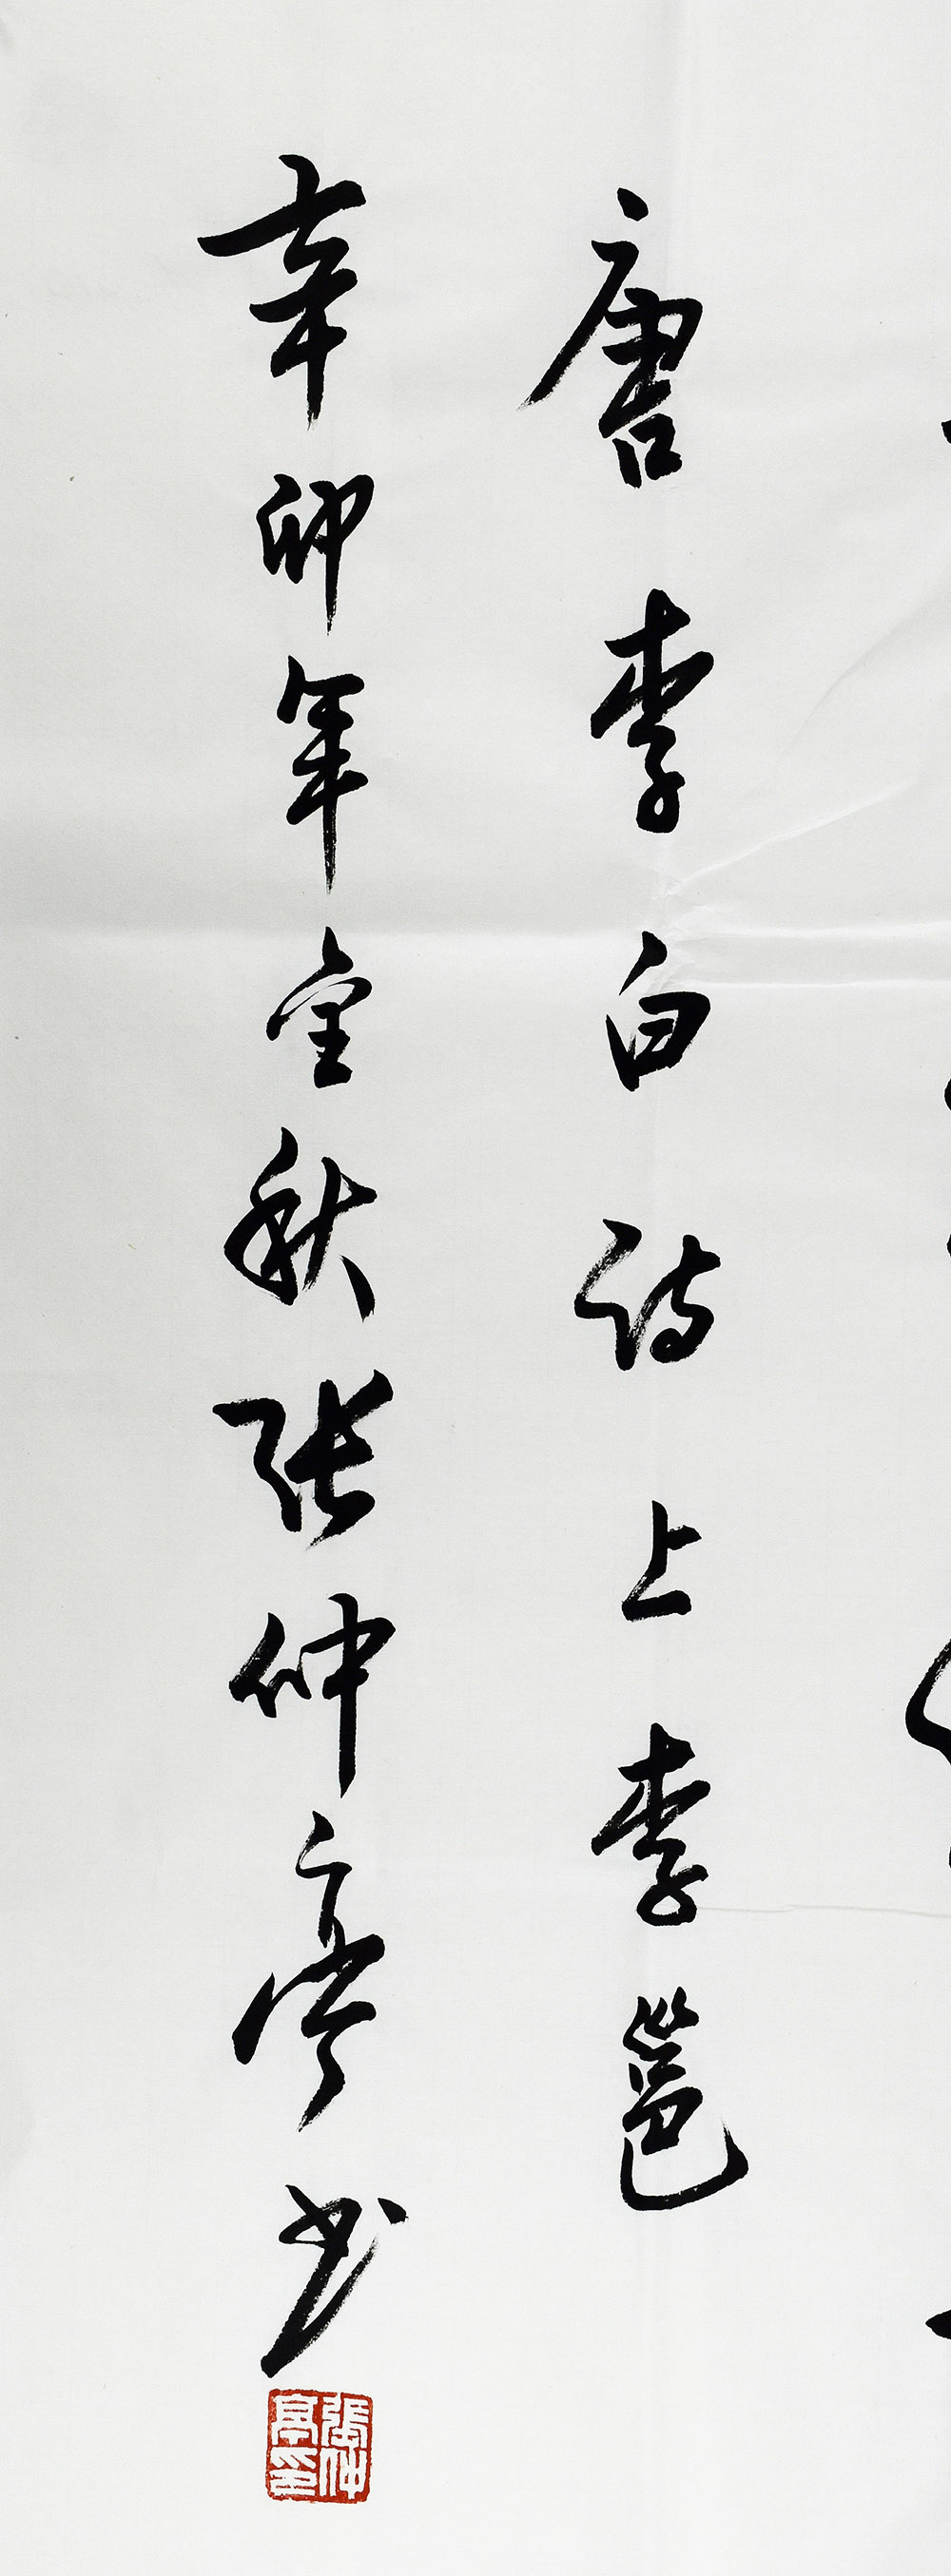 唐李白诗上李邕
辛卯年金秋张仲亭书
張仲亭印